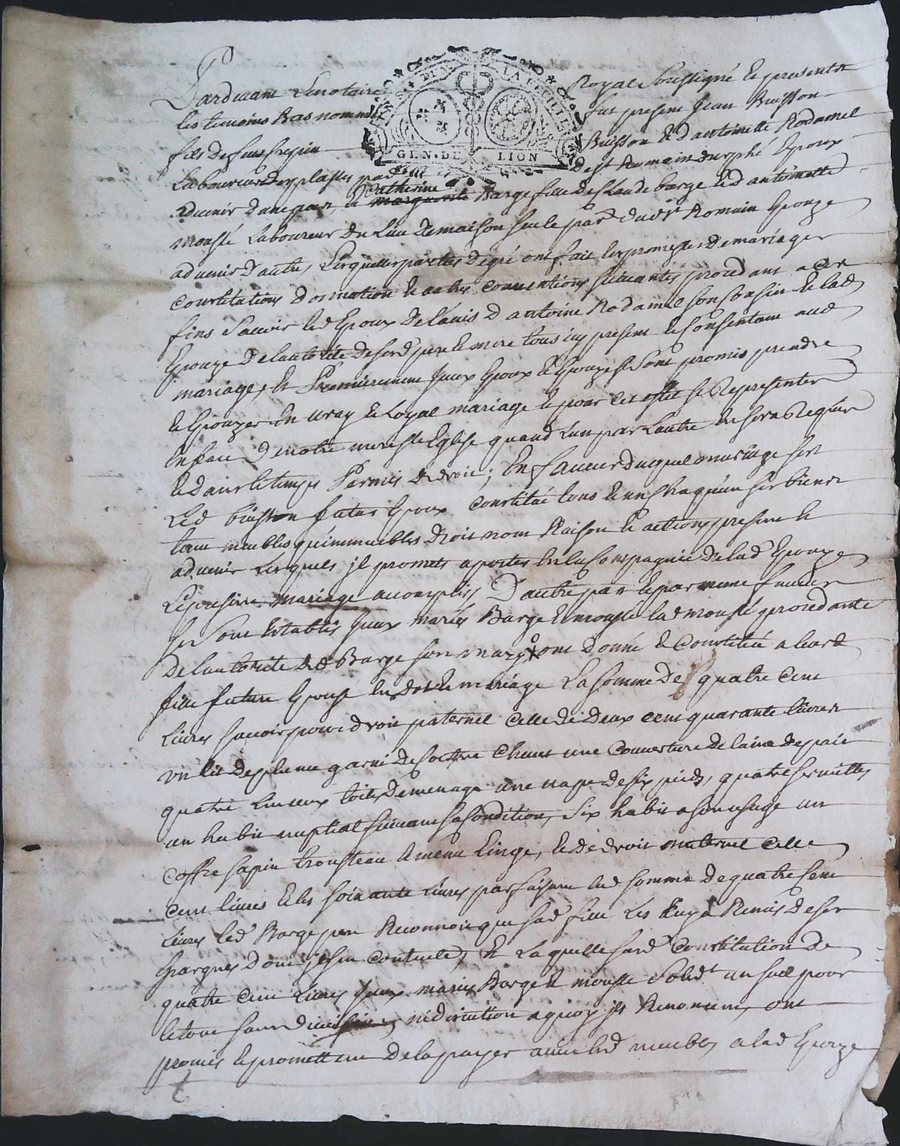 DEUX S. LA FEUILLE
GEN. DE LION
Pardevant Le notaire Royal soussigné et presents
les temoins Bas nommés fut present Jean Buisson
fils de feu Buisson et d'antoinette Rodamel
Laboureur des plasses par de St Romain durphé Epoux
advenir d'une part, et Catherine marguerite Barge fille de Claude barge et d'antoinette
mousté Laboureur du Lieu de maison seule par dud' St Romain Epouze
advenir d'autre, Lesquelles parties degré ont fait les promesses de mariage
Constitutions donnation et autres Conventions suivantes procedant a ces
fins Savoir led Epoux de l'avis d'antoine Rodamel son Cousin et lad
Epouze de l'autorité de sesd pere et mere tous icy present et Consentant aud
mariage, et Premierement Iceux Epoux et Epouze se sont promis prendre
et Epouzer en vray et Loyal mariage et pour cet effet se Representer
en face de notre mere Ste Eglise quand L'un par L'autre en sera Requis
et dans le temps Permis de droit; En faveur duquel mariage
led buisson futur Epoux Constitué tous et uns chaqu'uns ses biens
tant meubles qu'immeubles droits noms Raison et actions present et
advenir Lesquels il promet aporter en la Compagnie de lad' Epouze
Le present mariage accomplis D'autre part et par meme faveur
se sont Etablis Iceux mariés Barge et mousté lad mousté procedante
de l'autorité dud Barge son mary ont donné et Constitué a leurd
fille future Epouze en dot de mariage La somme de quatre cent
Livres savoir pour droit paternel Celle de deux cent quarante Livres
un lit de plume garni de son travers Chevet une Couverture de laine de pair
quatre Linceux toile de menage une nape de six pieds, quatre serviettes
un habit nuptial suivant sa Condition, six habits a son usage un
coffre sapin trousseau et menu Linge, et de droit maternel Celle
Cent livres et les soixante Livres parfaisant lad somme de quatre cent
Livres led' Barge pere Reconnoit que sad' fille Les luy a Remis de ses
Epargnes dont il s'en contente, et Laquelle susd' Constitution de
quatre Cent Livres Iceux mariés Barge et mousté solid't un seul pour
le tout sans division, ny discution a quoy ils Renoncent, ont
promis et promettent de la payer avec led meubles a lad Epouze